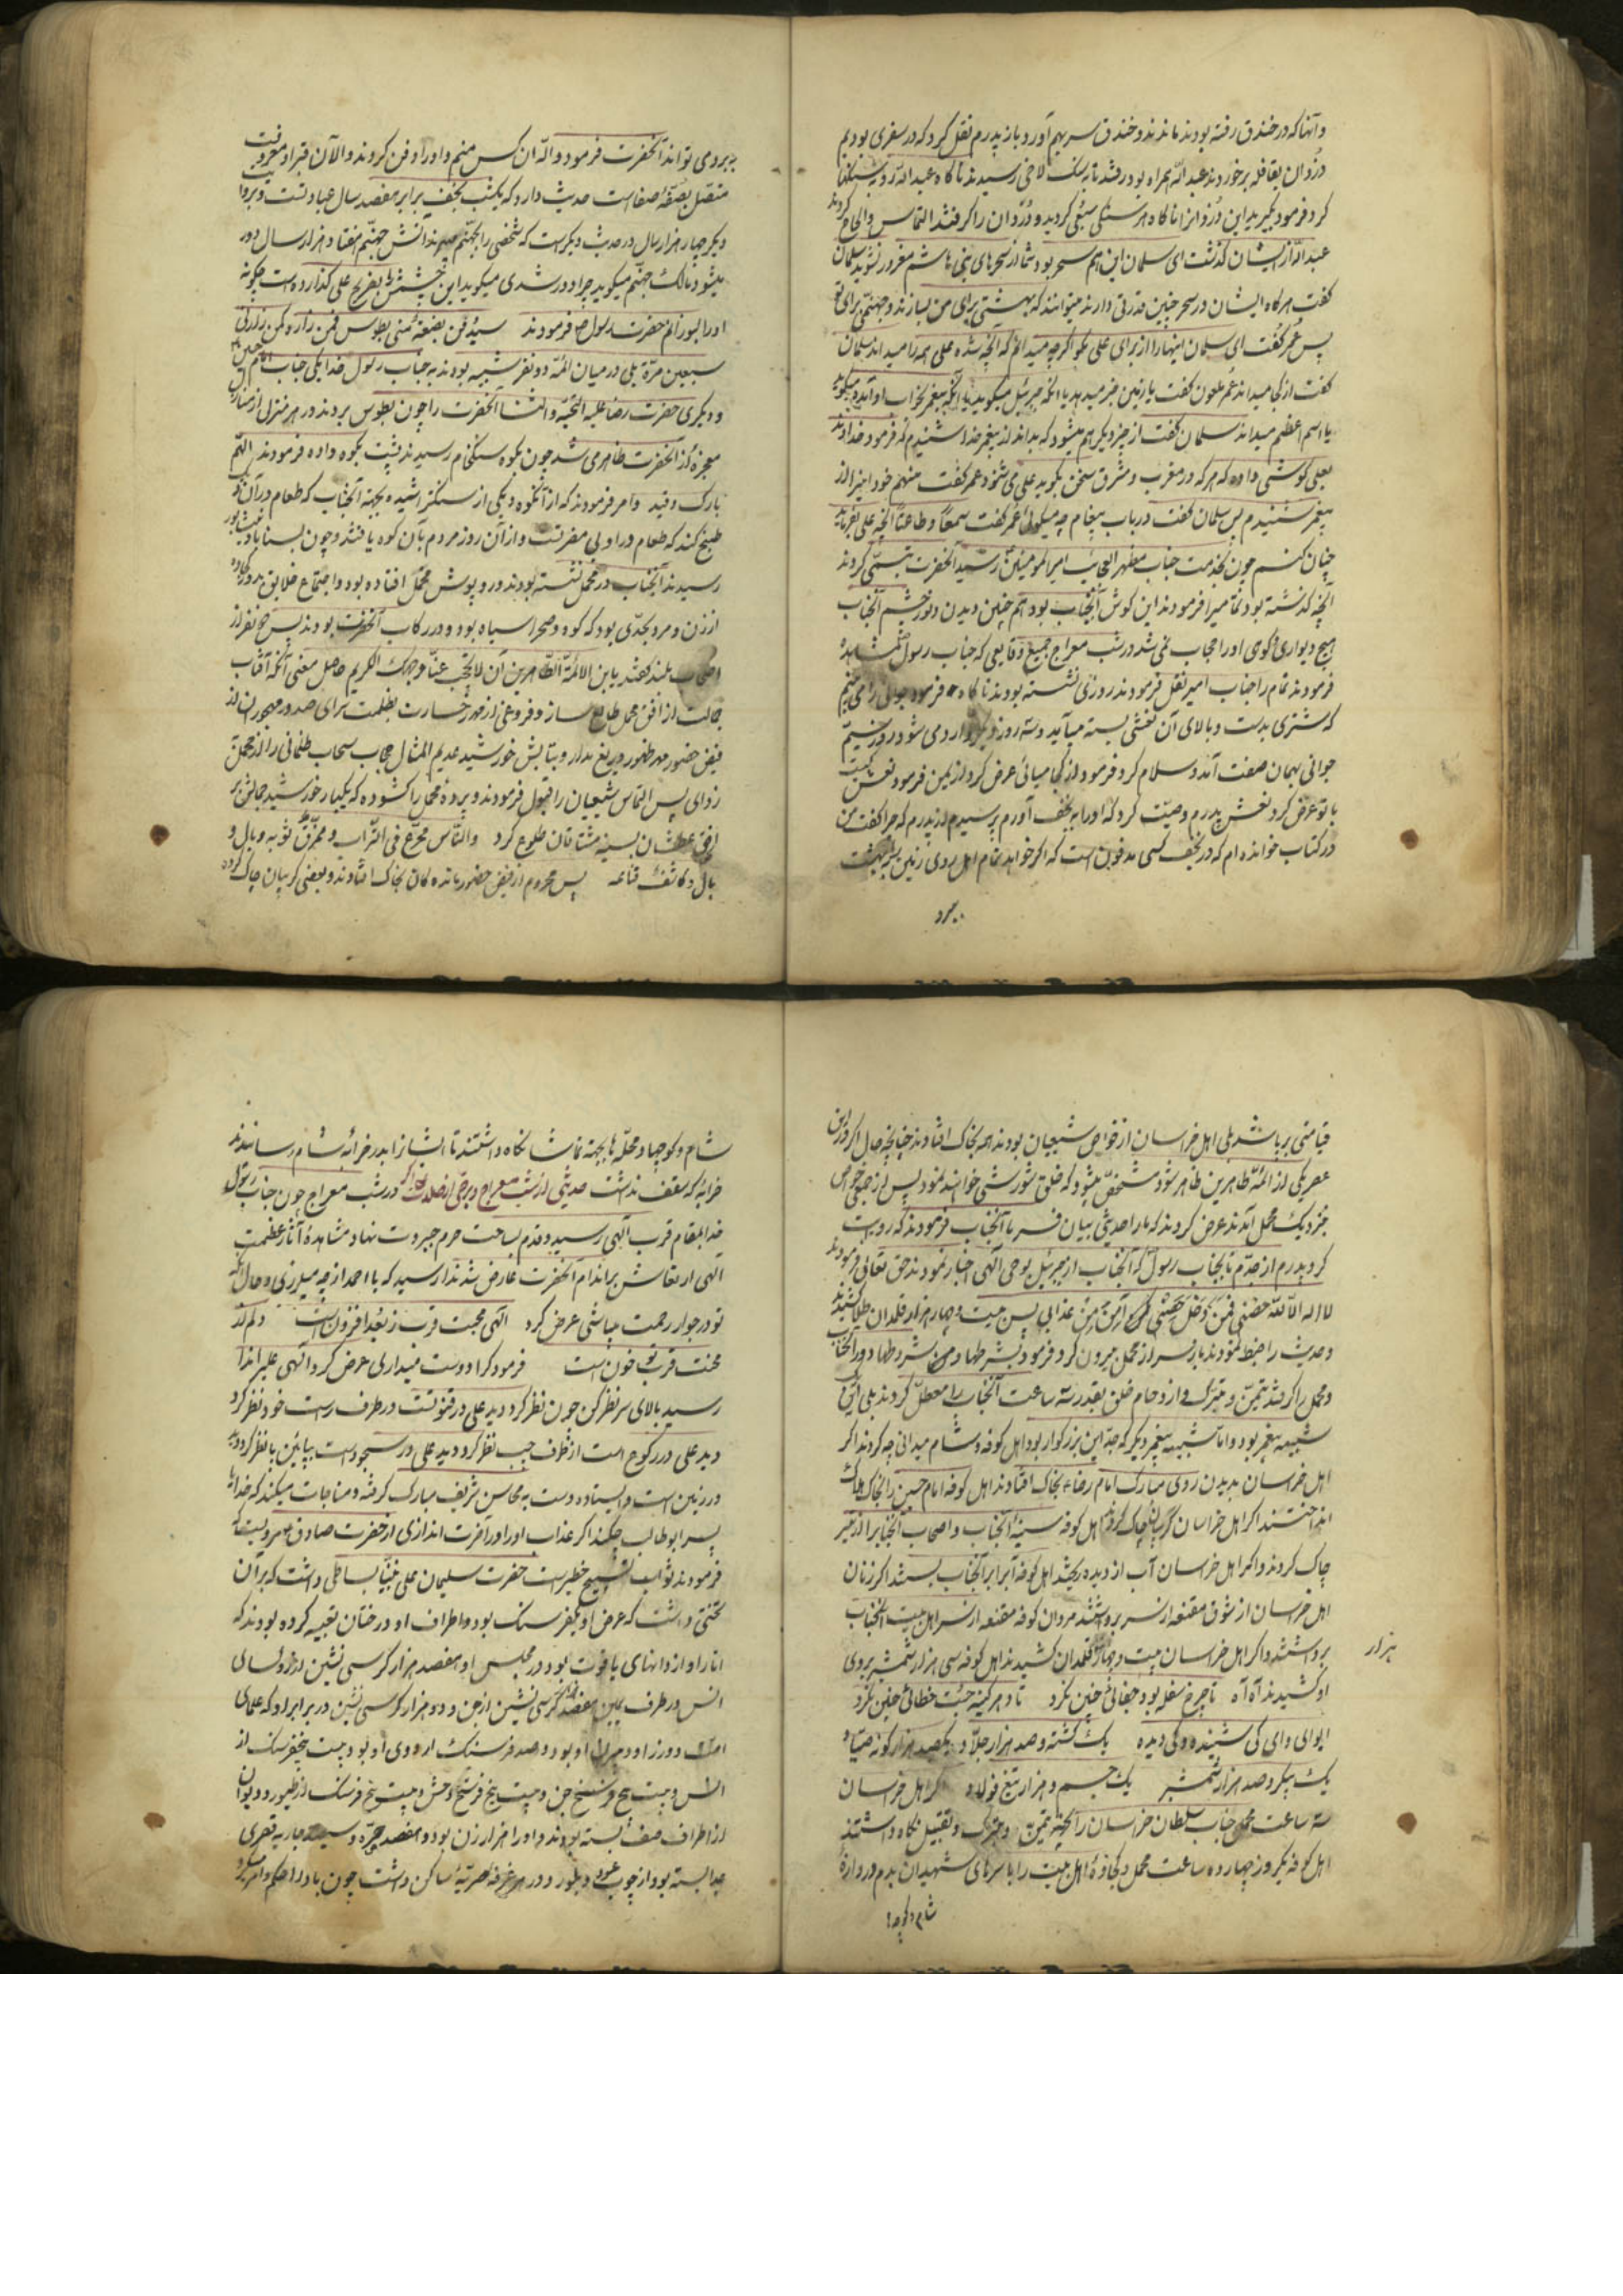 وآنها که در خندق رفته بودند ماندند و خندق سر بهم آورد و باز پدرم نقل کرد که در سفری بودیم
دزدان بقافله برخوردند عبدالله همراه بود رفتند تا به سنک لاخی رسیدند ناکاه عبدالله رو به سنکها
کرد فرمود بکیرید این دزدانرا ناکاه هر سنکی سبعی کردید و دزدان را کرفتند التماس والحاح کردند
عبدالله از ایشان کذشت ای سلمان این هم سحر بود شما از سحرهای بنی هاشم مغرور نشوید سلمان
کفت هرکاه ایشان در سحر چنین قدرتی دارند میتوانند که بهشتی برای من بسازند و جهنمی برای تو
پس عمر کفت ای سلمان اینها را از برای علی بکو اکرچه میدانم که آنچه شده علی همه را میداند سلمان
کفت از کجا میداند عمر ملعون کفت یا زمین خبر میدهد یا آنکه جبرئیل میکوید یا آنکه پیغمبر بخواب او آمده میکوید
یا اسم اعظم میداند سلمان کفت از چیز دیکر هم میشود که بداند از پیغمبر خدا شنیدم که فرمود خداوند
بعلی کوشی داده که هرکه در مغرب و مشرق سخن بکوید علی می شنود عمر کفت منهم خود اینرا از
پیغمبر شنیدم پس سلمان کفت در باب پیغام چه میکوئی عمر کفت سمعا و طاعتا آنچه علی بفرماید
چنان کنم چون بخدمت جناب مظهر العجایب امیرالمومنین رسید آنحضرت تبسمی کردند
آنچه کذشته بود تماما میرا فرمودند این کوش آنجناب بود هم چنین دیدن و نور چشم آنجناب
هیچ دیواری و کوهی او را حجاب نمی شد در شب معراج جمیع وقایعی که جناب رسول مشاهده
فرمودند تمام را جناب امیر نقل فرمودند روزی نشسته بودند ناکاه فرمود جوانی را می بینم
که شتری بدست و بالای آن نعشی بسته میآید و سه روز دیکر وارد می شود روز سیم
جوانی بهمان صفت آمد و سلام کرد فرمود از کجا میائی عرض کرد از یمن فرمود نعش کیست
با تو عرض کرد نعش پدرم وصیت کرد که او را به نجف آورم پرسیدم از پدرم که چرا کفت من
در کتاب خوانده ام که در نجف کسی مدفون است که اکر خواهد تمام اهل روی زمین را به بهشت
ببرد
ببرد می تواند آنحضرت فرمود والله آن کس منم و او را دفن کردند و الآن قبر او معروفست
متصل بصفه صفاست حدیث دارد که یکشب نجف برابر هفصد سال عبادتست و بروایت
دیکر چهار هزار سال در حدیث دیکر است که شخصی را بجهنم میبرند آتش جهنم هفتاد هزار سال دور
میشود مالک جهنم میکوید چرا دور شدی میکوید این چشمش بضریح علی کذارده است چکونه
او را بسوزانم حضرت رسول ص فرمودند سیدفن بضعة منی بطوس فمن زاره کمن زارنی
سبعین مرة بلی در میان ائمه دو نفر شبیه بودند به جناب رسول خدا یکی جناب امام حسن
و دیکری حضرت رضا علیه التحیة والثنا آنحضرت را چون بطوس بردند در هر منزل از منازل
معجزه از آنحضرت ظاهر می شد چون بکوه سنکی ام رسیدند پشت بکوه داده فرمودند اللهم
بارک وفیه وامر فرمودند که از آنکوه دیکی از سنک تراشیده بجهة آنجناب که طعام در آن
طبخ کنند که طعام در او بی مضرتست و از آن روز مردم بآن کوه یافتند و چون بسناباد نیشابور
رسیدند آنجناب در محمل نشسته بودند و روپوش محمل افتاده بود و اجتماع خلایق
از زن و مرد بحدی بود که کوه و صحرا سیاه بود و در رکاب آنحضرت بودند پس پنج نفر از
اصحاب بلند کفتند یابن الائمة الطاهرین آن لا تحجب عنا وجهک الکریم حاصل معنی آنکه آفتاب
جمالت از افق محمل طالع ساز و فروغی از مهر رخسارت بظلمت سرای صدور مهجوران از
فیض حضور مهر ظهور دریغ مدار و بتابش خورشید عدیم المثال حجاب سحاب ظلمانی را از محمل
زدای پس التماس شیعیان را قبول فرمودند و پرده محمل را کشوده که یکبار خورشید جمالش از
افق عطشان بسینه مشتاقان طلوع کرد والناس ممرغ فی التراب و ممزق ثوبه و بال و
بال و کاشف قناعه پس محروم از فیض حضور مانده کان بخاک افتادند و بعضی کریبان چاک کرده
قیامتی برپا شد بلی اهل خراسان از خواص شیعیان بودند همه بخاک افتادند چنانچه حال اکر در این
عصر یکی از ائمه طاهرین ظاهر شود مشخص میشود که خلق شورشی خواهند نمود پس از جمعی خواص
نزدیک محمل آمدند عرض کردند که ما را حدیثی بیان فرما آنجناب فرمودند که روایت
کرد پدرم از جدم تا بجناب رسول که آنجناب از جبرئیل بوحی الهی اخبار نمودند حق تعالی فرمودند
لا اله الا الله حصنی فمن دخل حصنی امن من عذابی پس بیست و چهار هزار قلمدان طلا کشیدند
و حدیث را ضبط نمودند باز سر از محمل بیرون کرد فرمود بشرطها و من شروطها دور آنجناب
و محمل را کرفتند بتیمن و تبرک و ازدحام خلق بقدر سه ساعت آنجناب را معطل کردند بلی این
شبیه پیغمبر بود و اما شبیه پیغمبر دیکر که جد این بزرکوار بود اهل کوفه و شام میدانی چه کردند اکر
اهل خراسان بدیدن روی مبارک امام رضاء بخاک افتادند اهل کوفه امام حسین را بخاک هلاک
انداختند اکر اهل خراسان کریبان چاک کردند اهل کوفه سینه آنجناب و اصحاب آنجنابرا از تیر
چاک کردند و اکر اهل خراسان آب از دیده ریختند اهل کوفه آبرا بر آنجناب بستند اکر زنان
اهل خراسان از شوق مقنعه از سر برداشتند مردان کوفه مقنعه از سر اهل بیت آنجناب
برداشتند و اکر اهل خراسان بیست و چهار هزار قلمدان کشیدند اهل کوفه سی هزار شمشیر بروی
او کشیدند آه آه تا چرخ سفله بود جفائی چنین نکرد تا دهر کینه جست خطائی چنین نکرد
ای وای وای کی شنیده و کی دیده یک کشته و صد هزار جلاد یکصید هزار کونه صیاد
یک پیکر و صد هزار شمشیر یک جسم و هزار تیغ فولاد اکر اهل خراسان
سه ساعت محمل جناب سلطان خراسان را بجهة تیمن و تبرک و تقبیل نکاه داشتند
اهل کوفه یکروز چهارده ساعت محمل و کجاوه اهل بیت را با سرهای شهیدان بدم دروازه
شام و کوچه
هزار
شام و کوچها و محله ها بجهة تماشا نکاه داشتند تا ایشانرا بدر خرابه شام رسانیدند
خرابه که سقف نداشت حدیثی از شب معراج و برخی از فضایل در شب معراج چون جناب رسول
خدا بمقام قرب الهی رسید و قدم بساحت حرم جبروت نهاد مشاهده آثار عظمت
الهی ارتعاش بر اندام آنحضرت عارض شد ندا رسید که یا احمد از چه میلرزی و حال آنکه
تو در جوار رحمت مباشی عرض کرد الهی محبت قرب ز بعد افزونست دلم از
محنت قرب تو خون است فرمود کرا دوست میداری عرض کرد الهی علیرا ندا
رسید بالای سر نظر کن چون نظر کرد دید علی در قنوتست در طرف راست خود نظر کرد
دید علی در رکوع است از طرف چپ نظر کرد دید علی در سجود است بپایین پا نظر کرد دید
در زمین است و ایستاده دست به محاسن شریف مبارک کرفته و مناجات میکند که خدایا
پسر ابوطالب چکند اکر عذاب او را در آخرت اندازی از حضرت صادق مرویست که
فرمودند ثواب تسبیح خطیر است حضرت سلیمان علی نبینا بساطی داشت که بر آن
تختی داشت که عرض او یکفرسنک بود و اطراف او درختان تعبیه کرده بودند که
انار او از دانهای یاقوت بود و در مجلس او هفصد هزار کرسی نشین از رؤسای
انس در طرف یمین هفصد کرسی نشین از جن و دو هزار کرسی نشین در برابر او که علمای
امت دور زا و دیرا او بود و صد فرسنک اردوی او بود بیست پنج فرسنک از
انس و بیست پنج فرسخ جن و بیست پنج فرسخ وحش و بیست پنج فرسنک از طیور و دیوان
از اطراف صف بسته بودند و او را هزار زن بود و هفصد حره و سیصد جاریه قصری
جدا بسته بود از چوب عود و بلور و در هر غرفه حوریه ساکن داشت چون باد را حکم و امر میکرد